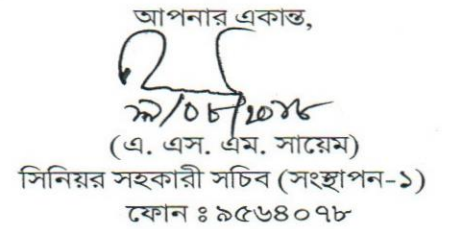 আপনার একান্ত,
(এ. এস. এম. সায়েম)
সিনিয়র সহকারী সচিব (সংস্থাপন-১)
ফোন ঃ ৯৫৬৪০৭৮